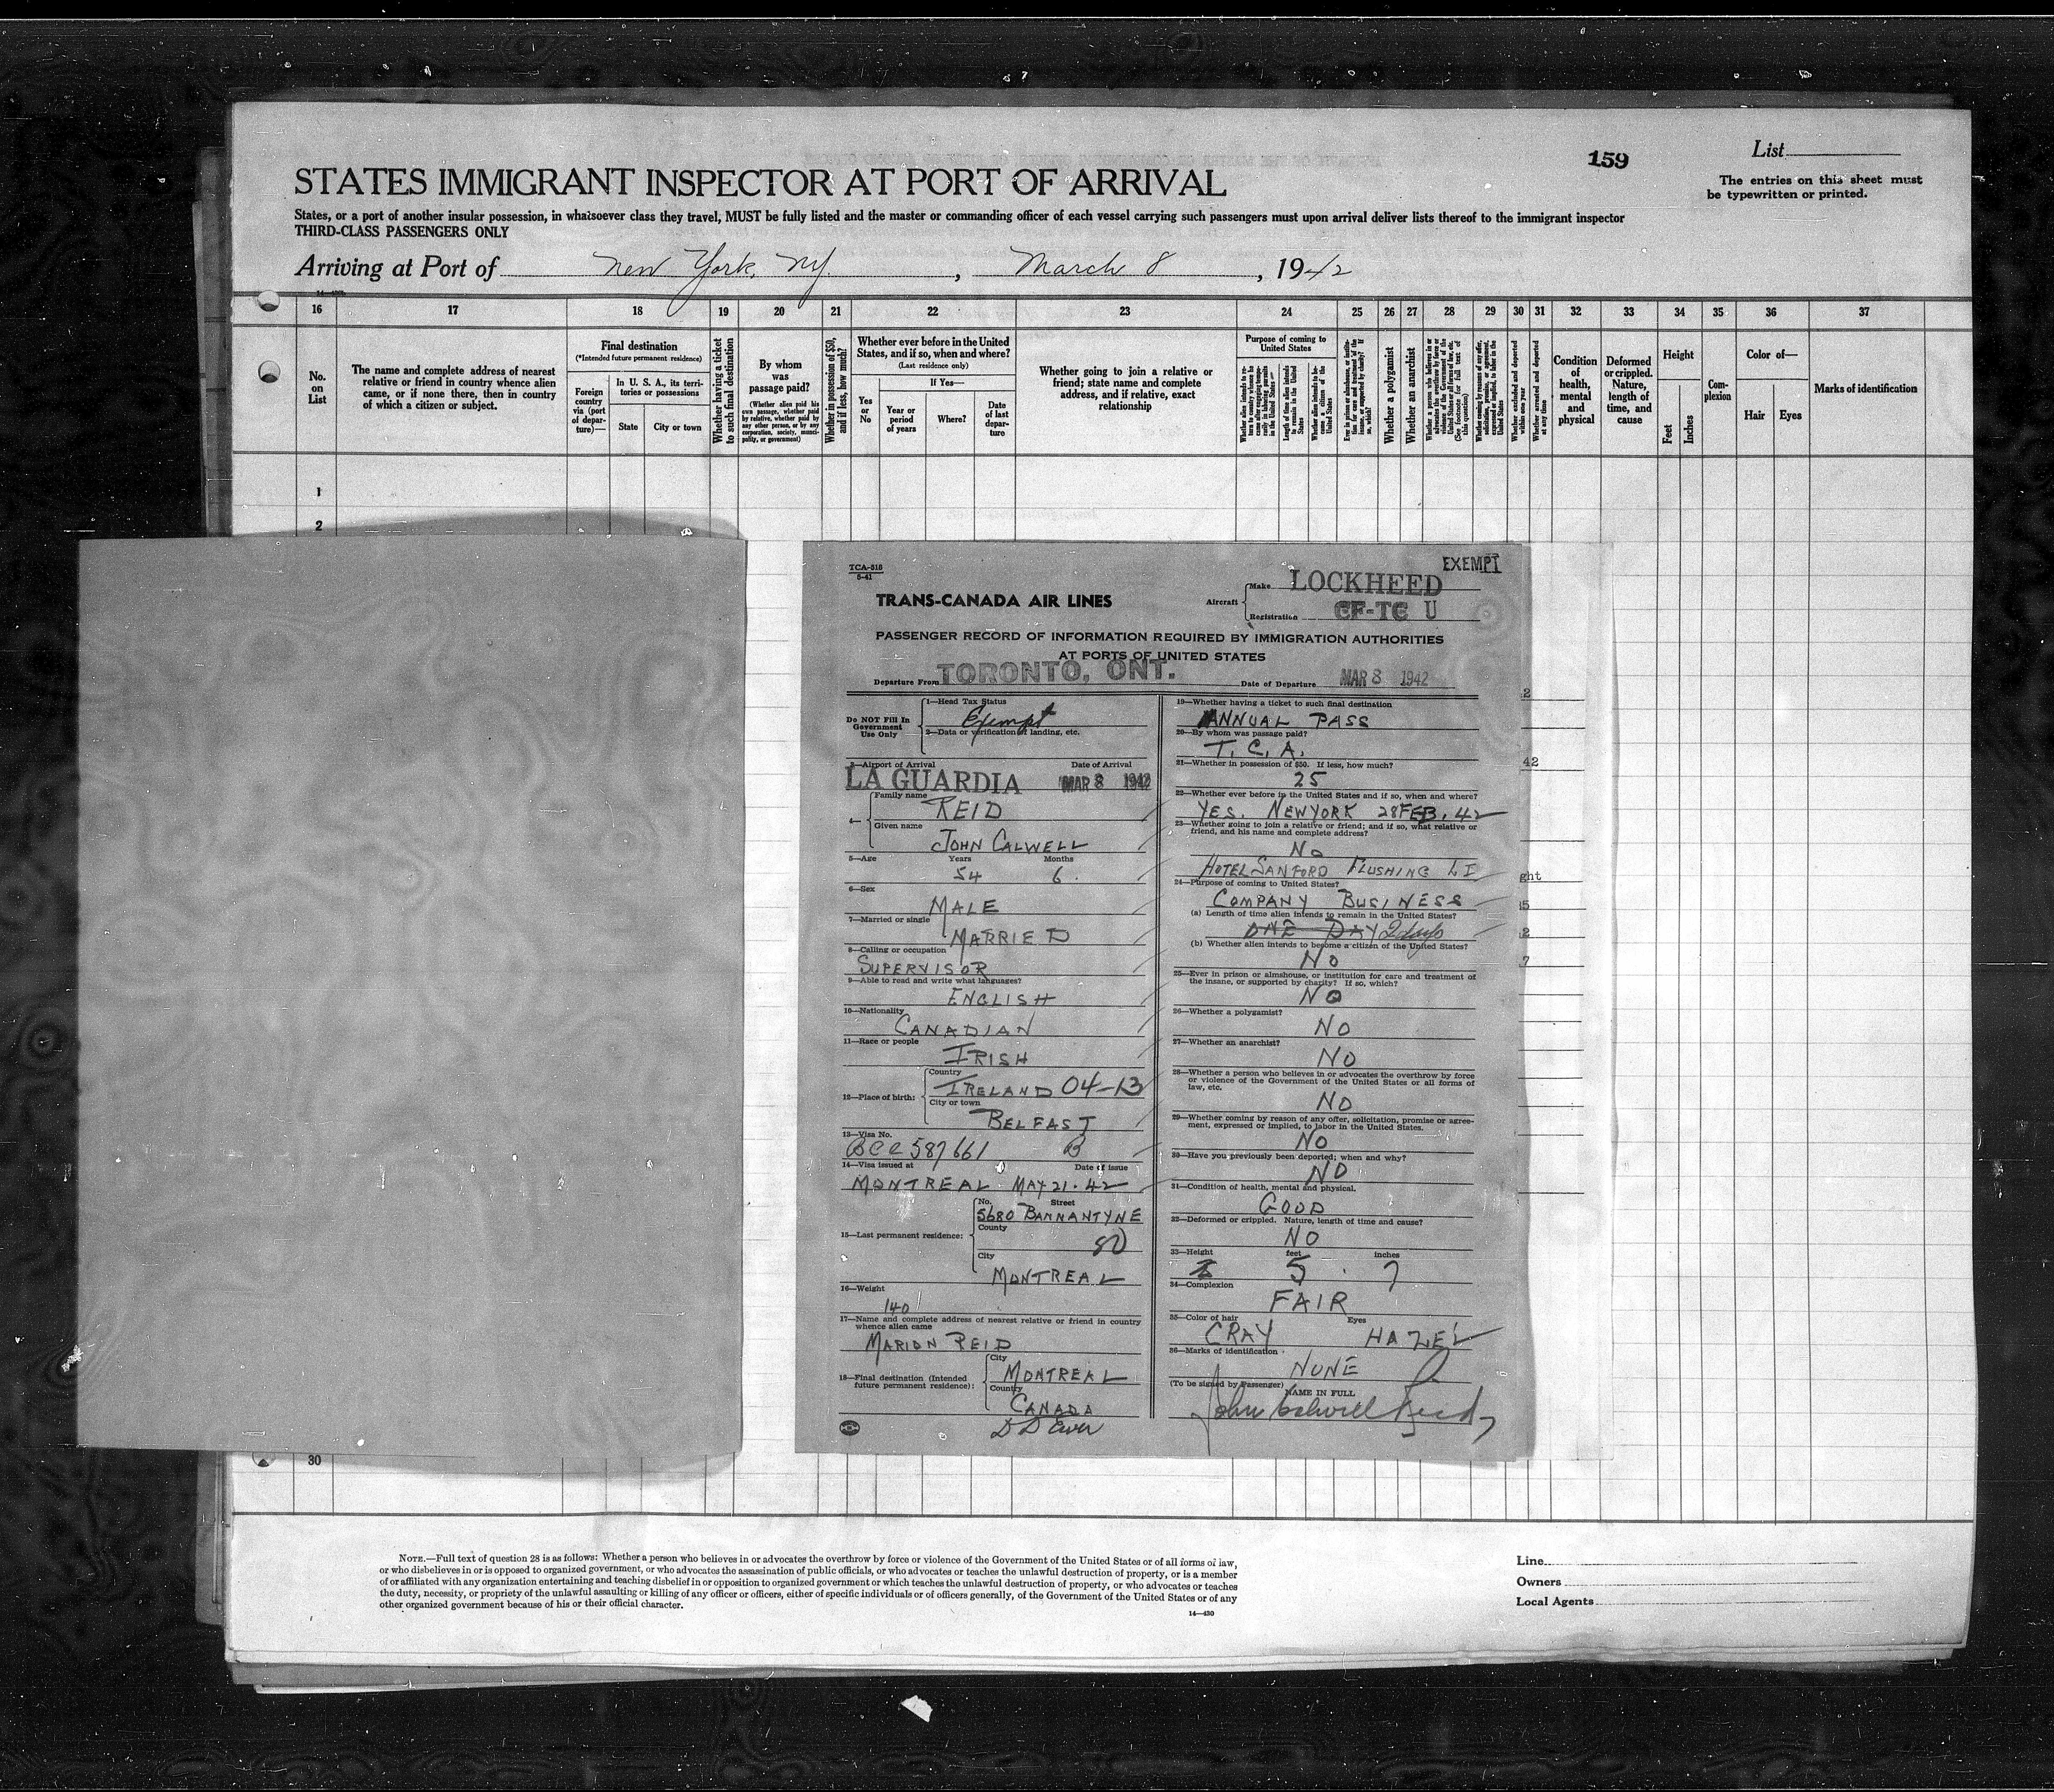 159
List
The entries on this sheet must
be typewritten or printed.
STATES IMMIGRANT INSPECTOR AT PORT OF ARRIVAL
States, or a port of another insular possession, in whatsoever class they travel, MUST be fully listed and the master or commanding officer of each vessel carrying such passengers must upon arrival deliver lists thereof to the immigrant inspector
THIRD-CLASS PASSENGERS ONLY
Arriving at Port of New York, NY. , March 8 , 1942
16 17 18 19 20 21 22 23 24 25 26 27 28 29 30 31 32 33 34 35 36 37
No.
on
List
The name and complete address of nearest
relative or friend in country whence alien
came, or if none there, then in country
of which a citizen or subject.
Final destination
(*Intended future permanent residence)
Foreign
country
via (port
of depar-
ture)—
In U. S. A., its terri-
tories or possessions
State
City or town
Whether having a ticket
to such final destination
By whom
was
passage paid?
(Whether alien paid his
own passage, whether paid
by relative, whether paid by
any other person, or by any
corporation, society, munici-
pality, or government)
Whether in possession of $50,
and if less, how much?
Whether ever before in the United
States, and if so, when and where?
(Last residence only)
Yes
or
No
If Yes—
Year or
period
of years
Where?
Date
of last
depar-
ture
Whether going to join a relative or
friend; state name and complete
address, and if relative, exact
relationship
Purpose of coming to
United States
Whether a polygamist
Whether an anarchist
Condition
of
health,
mental
and
physical
Deformed
or crippled.
Nature,
length of
time, and
cause
Height
Feet
Inches
Com-
plexion
Color of—
Hair
Eyes
Marks of identification
1
2
TCA-518
5-41
EXEMPT
TRANS-CANADA AIR LINES
Aircraft
Make LOCKHEED
Registration CF-TC U
PASSENGER RECORD OF INFORMATION REQUIRED BY IMMIGRATION AUTHORITIES
AT PORTS OF UNITED STATES
Departure From TORONTO, ONT. Date of Departure MAR 8 1942
Do NOT Fill In
Government
Use Only
1—Head Tax Status
Exempt
2—Data or verification of landing, etc.
3—Airport of Arrival Date of Arrival
LA GUARDIA MAR 8 1942
4—
Family name
REID
Given name
JOHN CALWELL
5—Age Years Months
54 6
6—Sex
MALE
7—Married or single
MARRIED
8—Calling or occupation
SUPERVISOR
9—Able to read and write what languages?
ENGLISH
10—Nationality
CANADIAN
11—Race or people
IRISH
12—Place of birth:
Country
IRELAND 04-13
City or town
BELFAST
13—Visa No.
BCC 587661 B
14—Visa issued at Date of issue
MONTREAL MAY 21.42
15—Last permanent residence:
No. Street
5680 BANNANTYNE
County
City
MONTREAL
16—Weight
140
17—Name and complete address of nearest relative or friend in country
whence alien came
MARION REID
18—Final destination (Intended
future permanent residence):
City
MONTREAL
Country
CANADA
19—Whether having a ticket to such final destination
ANNUAL PASS
20—By whom was passage paid?
T. C. A.
21—Whether in possession of $50. If less, how much?
25
22—Whether ever before in the United States and if so, when and where?
YES. NEW YORK 28 FEB. 42
23—Whether going to join a relative or friend; and if so, what relative or
friend, and his name and complete address?
NO
HOTEL SANFORD FLUSHING L I
24—Purpose of coming to United States?
COMPANY BUSINESS
(a) Length of time alien intends to remain in the United States?
ONE DAY 2 days
(b) Whether alien intends to become a citizen of the United States?
NO
25—Ever in prison or almshouse, or institution for care and treatment of
the insane, or supported by charity? If so, which?
NO
26—Whether a polygamist?
NO
27—Whether an anarchist?
NO
28—Whether a person who believes in or advocates the overthrow by force
or violence of the Government of the United States or all forms of
law, etc.
NO
29—Whether coming by reason of any offer, solicitation, promise or agree-
ment, expressed or implied, to labor in the United States.
NO
30—Have you previously been deported; when and why?
NO
31—Condition of health, mental and physical.
GOOD
32—Deformed or crippled. Nature, length of time and cause?
NO
33—Height feet inches
5 7
34—Complexion
FAIR
35—Color of hair Eyes
GRAY HAZEL
36—Marks of identification
NONE
(To be signed by Passenger)
NAME IN FULL
John Calwell Reid
2
42
ght
5
2
7
30
NOTE.—Full text of question 28 is as follows: Whether a person who believes in or advocates the overthrow by force or violence of the Government of the United States or of all forms of law,
or who disbelieves in or is opposed to organized government, or who advocates the assassination of public officials, or who advocates or teaches the unlawful destruction of property, or is a member
of or affiliated with any organization entertaining and teaching disbelief in or opposition to organized government or which teaches the unlawful destruction of property, or who advocates or teaches
the duty, necessity, or propriety of the unlawful assaulting or killing of any officer or officers, either of specific individuals or of officers generally, of the Government of the United States or of any
other organized government because of his or their official character.
14—430
Line
Owners
Local Agents